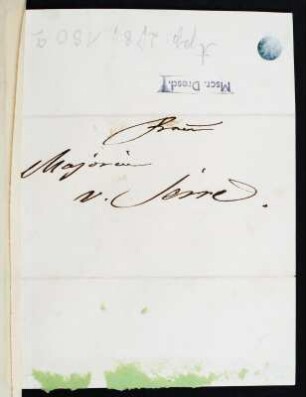 App. 278, 180 a
Mscr. Dresd.
Frau
Majorin
v. Serre.